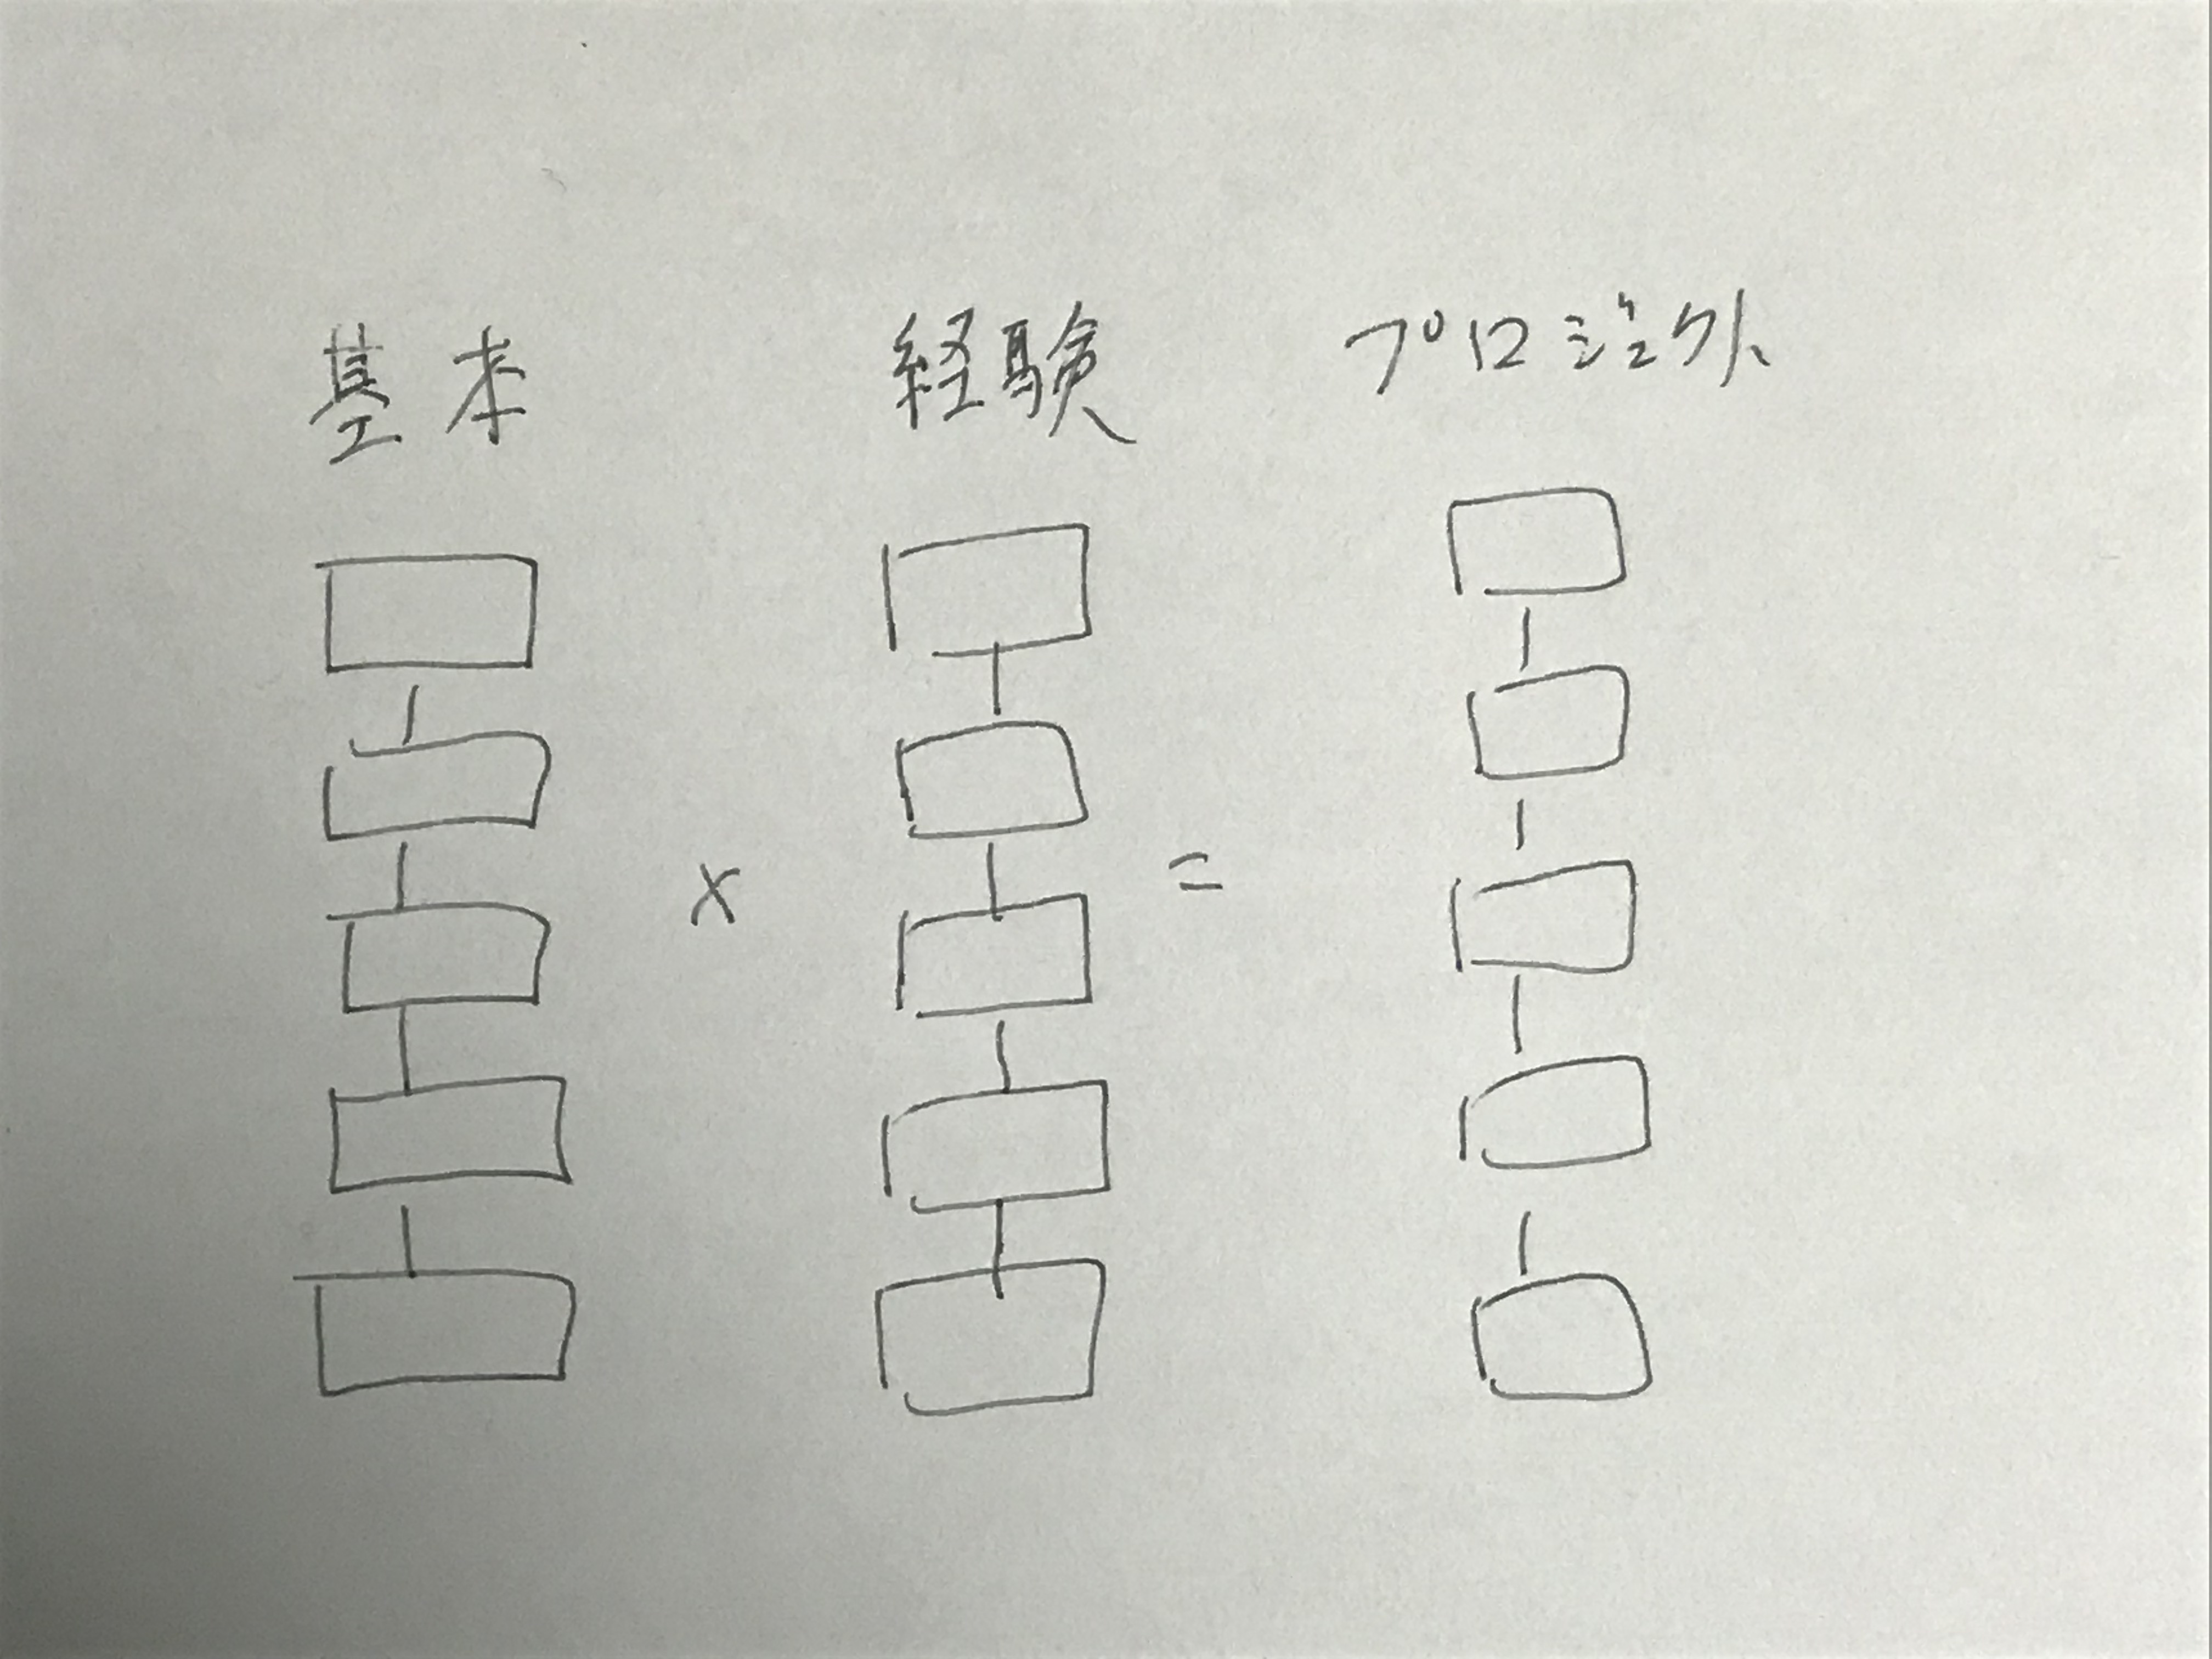 基本 経験 プロジェクト
× =